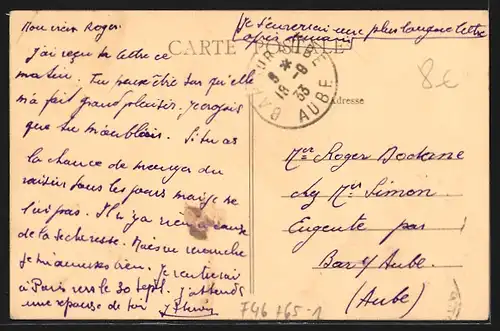 Mon vieux Roger.
Je t'enverrai une plus longue lettre
après demain
CARTE POSTALE
J'ai reçu ta lettre ce
matin. Tu peux être sûr qu'elle
m'a fait grand plaisir. Je croyais
que tu m'oubliais. Si tu as
la chance de manger du
raisin tous les jours moi je ne
l'ai pas. Il n'y a rien à cause
de la secheresse. Mais en revanche
je m'amuse bien. Je rentrerai
à Paris vers le 30 sept. J'attends
une reponse de toi
BAR-SUR-AUBE
AUBE
33
Adresse
8€
Mr Roger Bodenne
chez Mr Simon
Eugente par
Bar s/ Aube
(Aube)
F46 +65-1